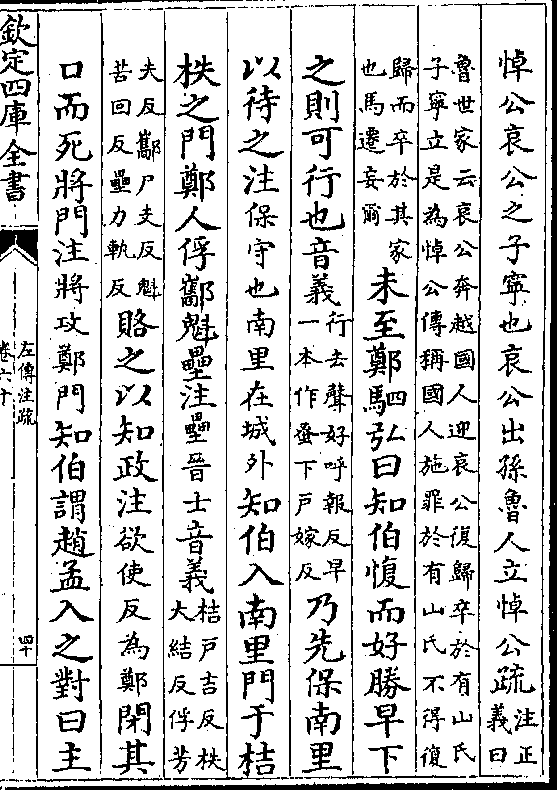 悼公哀公之子寧也哀公出孫魯人立悼公疏注正義曰
魯世家云哀公奔越國人迎哀公復歸卒於有山氏
子寧立是為悼公傳稱國人施罪於有山氏不得復
歸而卒於其家
也馬遷妄爾
未至鄭駟弘曰知伯愎而好勝早下
之則可行也音義行去聲好呼報反早
一本作蚤下戸嫁反
乃先保南里
以待之注保守也南里在城外知伯入南里門于桔
柣之門鄭人俘酅魁壘注壘晉士音義桔戸吉反柣
大結反俘芳
夫反酅戸圭反魁
苦回反壘力軌反
賂之以知政注欲使反為鄭閉其
口而死將門注將攻鄭門知伯謂趙孟入之對曰主
欽定四庫全書
左傳注疏
卷六十
四十